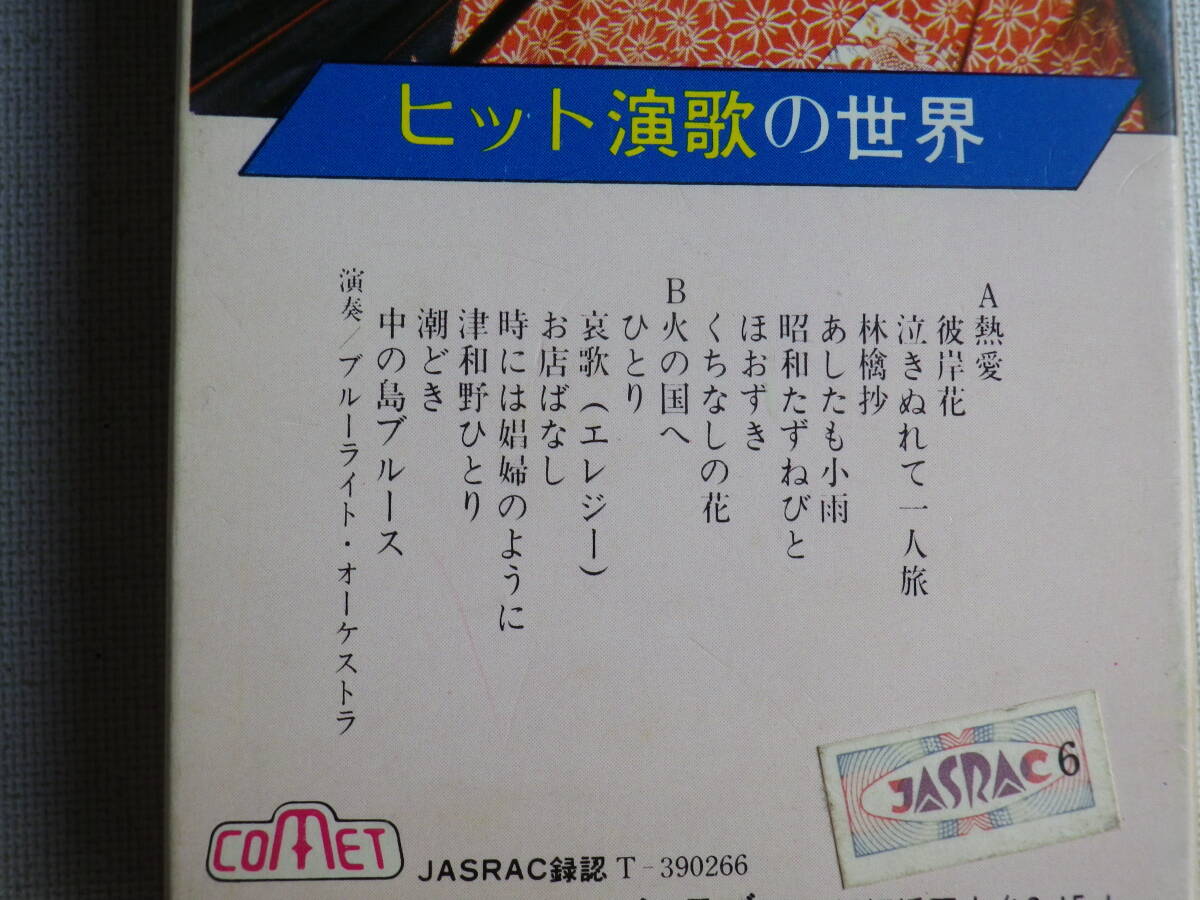 ヒット演歌の世界
A熱愛
彼岸花
泣きぬれて一人旅
林檎抄
あしたも小雨
昭和たずねびと
ほおずき
くちなしの花
B火の国へ
ひとり
哀歌(エレジー)
お店ばなし
時には娼婦のように
津和野ひとり
潮どき
中の島ブルース
演奏/ブルーライト・オーケストラ
JASRAC 6
COMET
JASRAC録認 T-390266